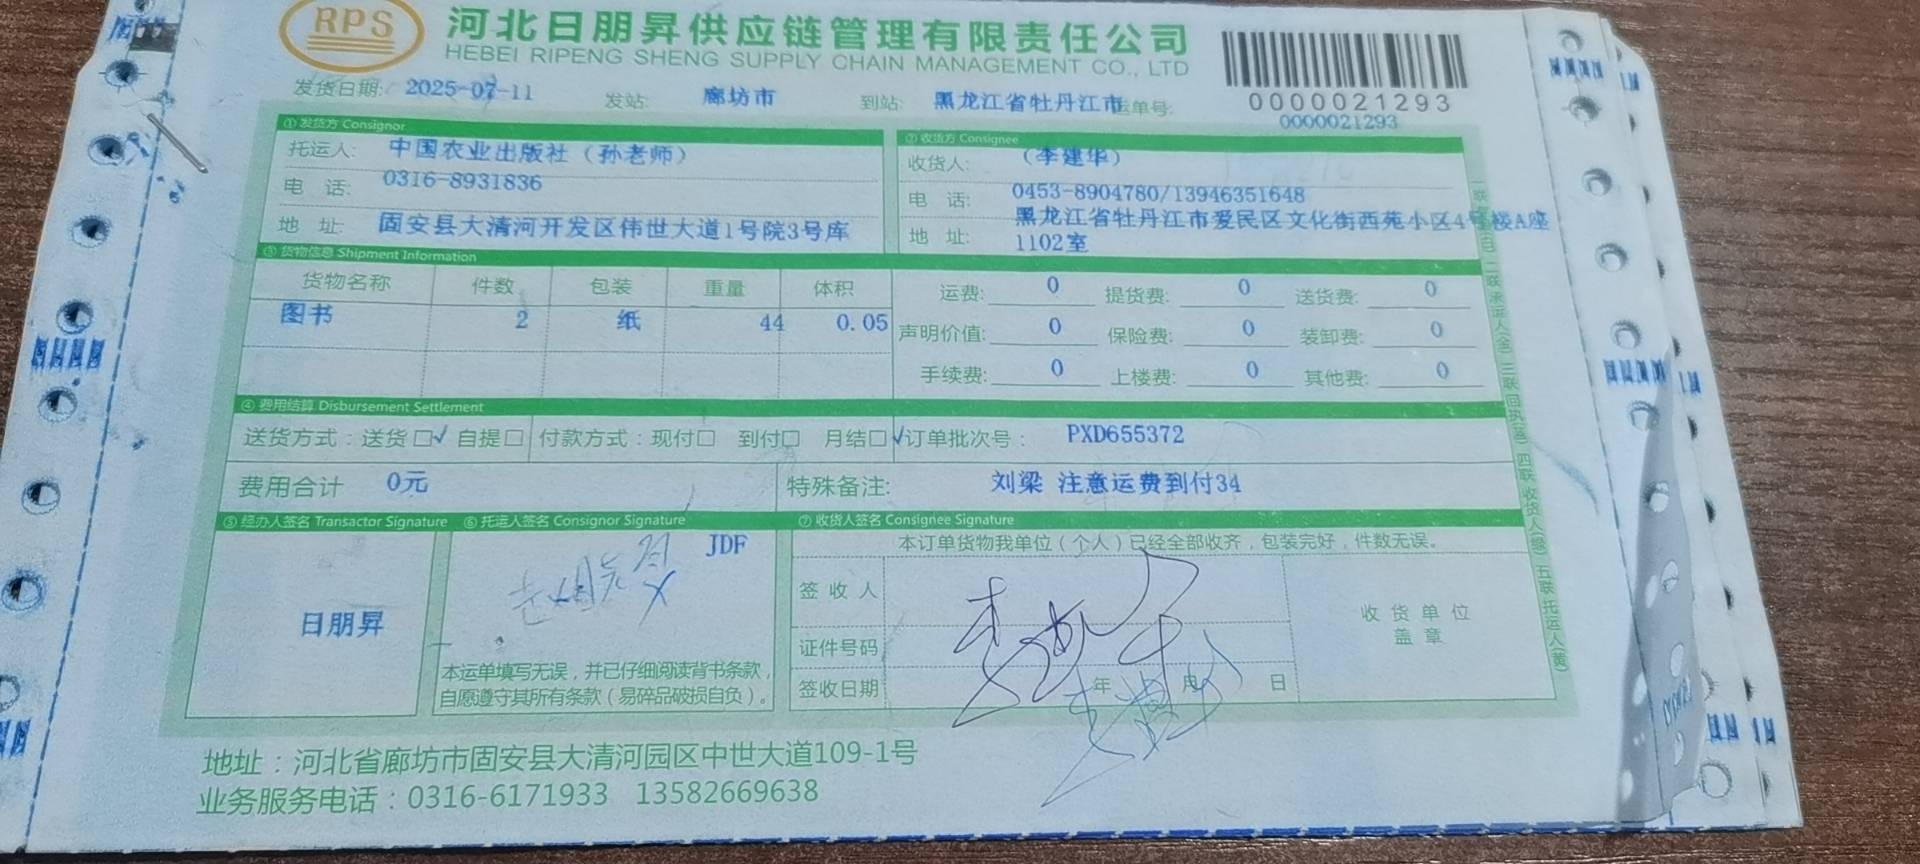 RPS
河北日朋昇供应链管理有限责任公司
HEBEI RIPENG SHENG SUPPLY CHAIN MANAGEMENT CO., LTD
发货日期: 2025-07-11 发站: 廊坊市 到站: 黑龙江省牡丹江市 运单号:
0000021293
0000021293
① 发货方 Consignor
托运人: 中国农业出版社（孙老师）
电 话: 0316-8931836
地 址: 固安县大清河开发区伟世大道1号院3号库
② 收货方 Consignee
收货人: （李建华）
电 话: 0453-8904780/13946351648
地 址: 黑龙江省牡丹江市爱民区文化街西苑小区4号楼A座
1102室
③ 货物信息 Shipment Information
货物名称 件数 包装 重量 体积
图书 2 纸 44 0.05
运费: 0 提货费: 0 送货费: 0
声明价值: 0 保险费: 0 装卸费: 0
手续费: 0 上楼费: 0 其他费: 0
④ 费用结算 Disbursement Settlement
送货方式：送货□√ 自提□ 付款方式：现付□ 到付□ 月结□√ 订单批次号： PXD655372
费用合计 0元 特殊备注: 刘梁 注意运费到付34
⑤ 经办人签名 Transactor Signature ⑥ 托运人签名 Consignor Signature ⑦ 收货人签名 Consignee Signature
日朋昇
JDF
本运单填写无误，并已仔细阅读背书条款，
自愿遵守其所有条款（易碎品破损自负）。
本订单货物我单位（个人）已经全部收齐，包装完好，件数无误。
签收人
证件号码
签收日期 年 月 日
收货单位
盖章
地址：河北省廊坊市固安县大清河园区中世大道109-1号
业务服务电话：0316-6171933 13582669638